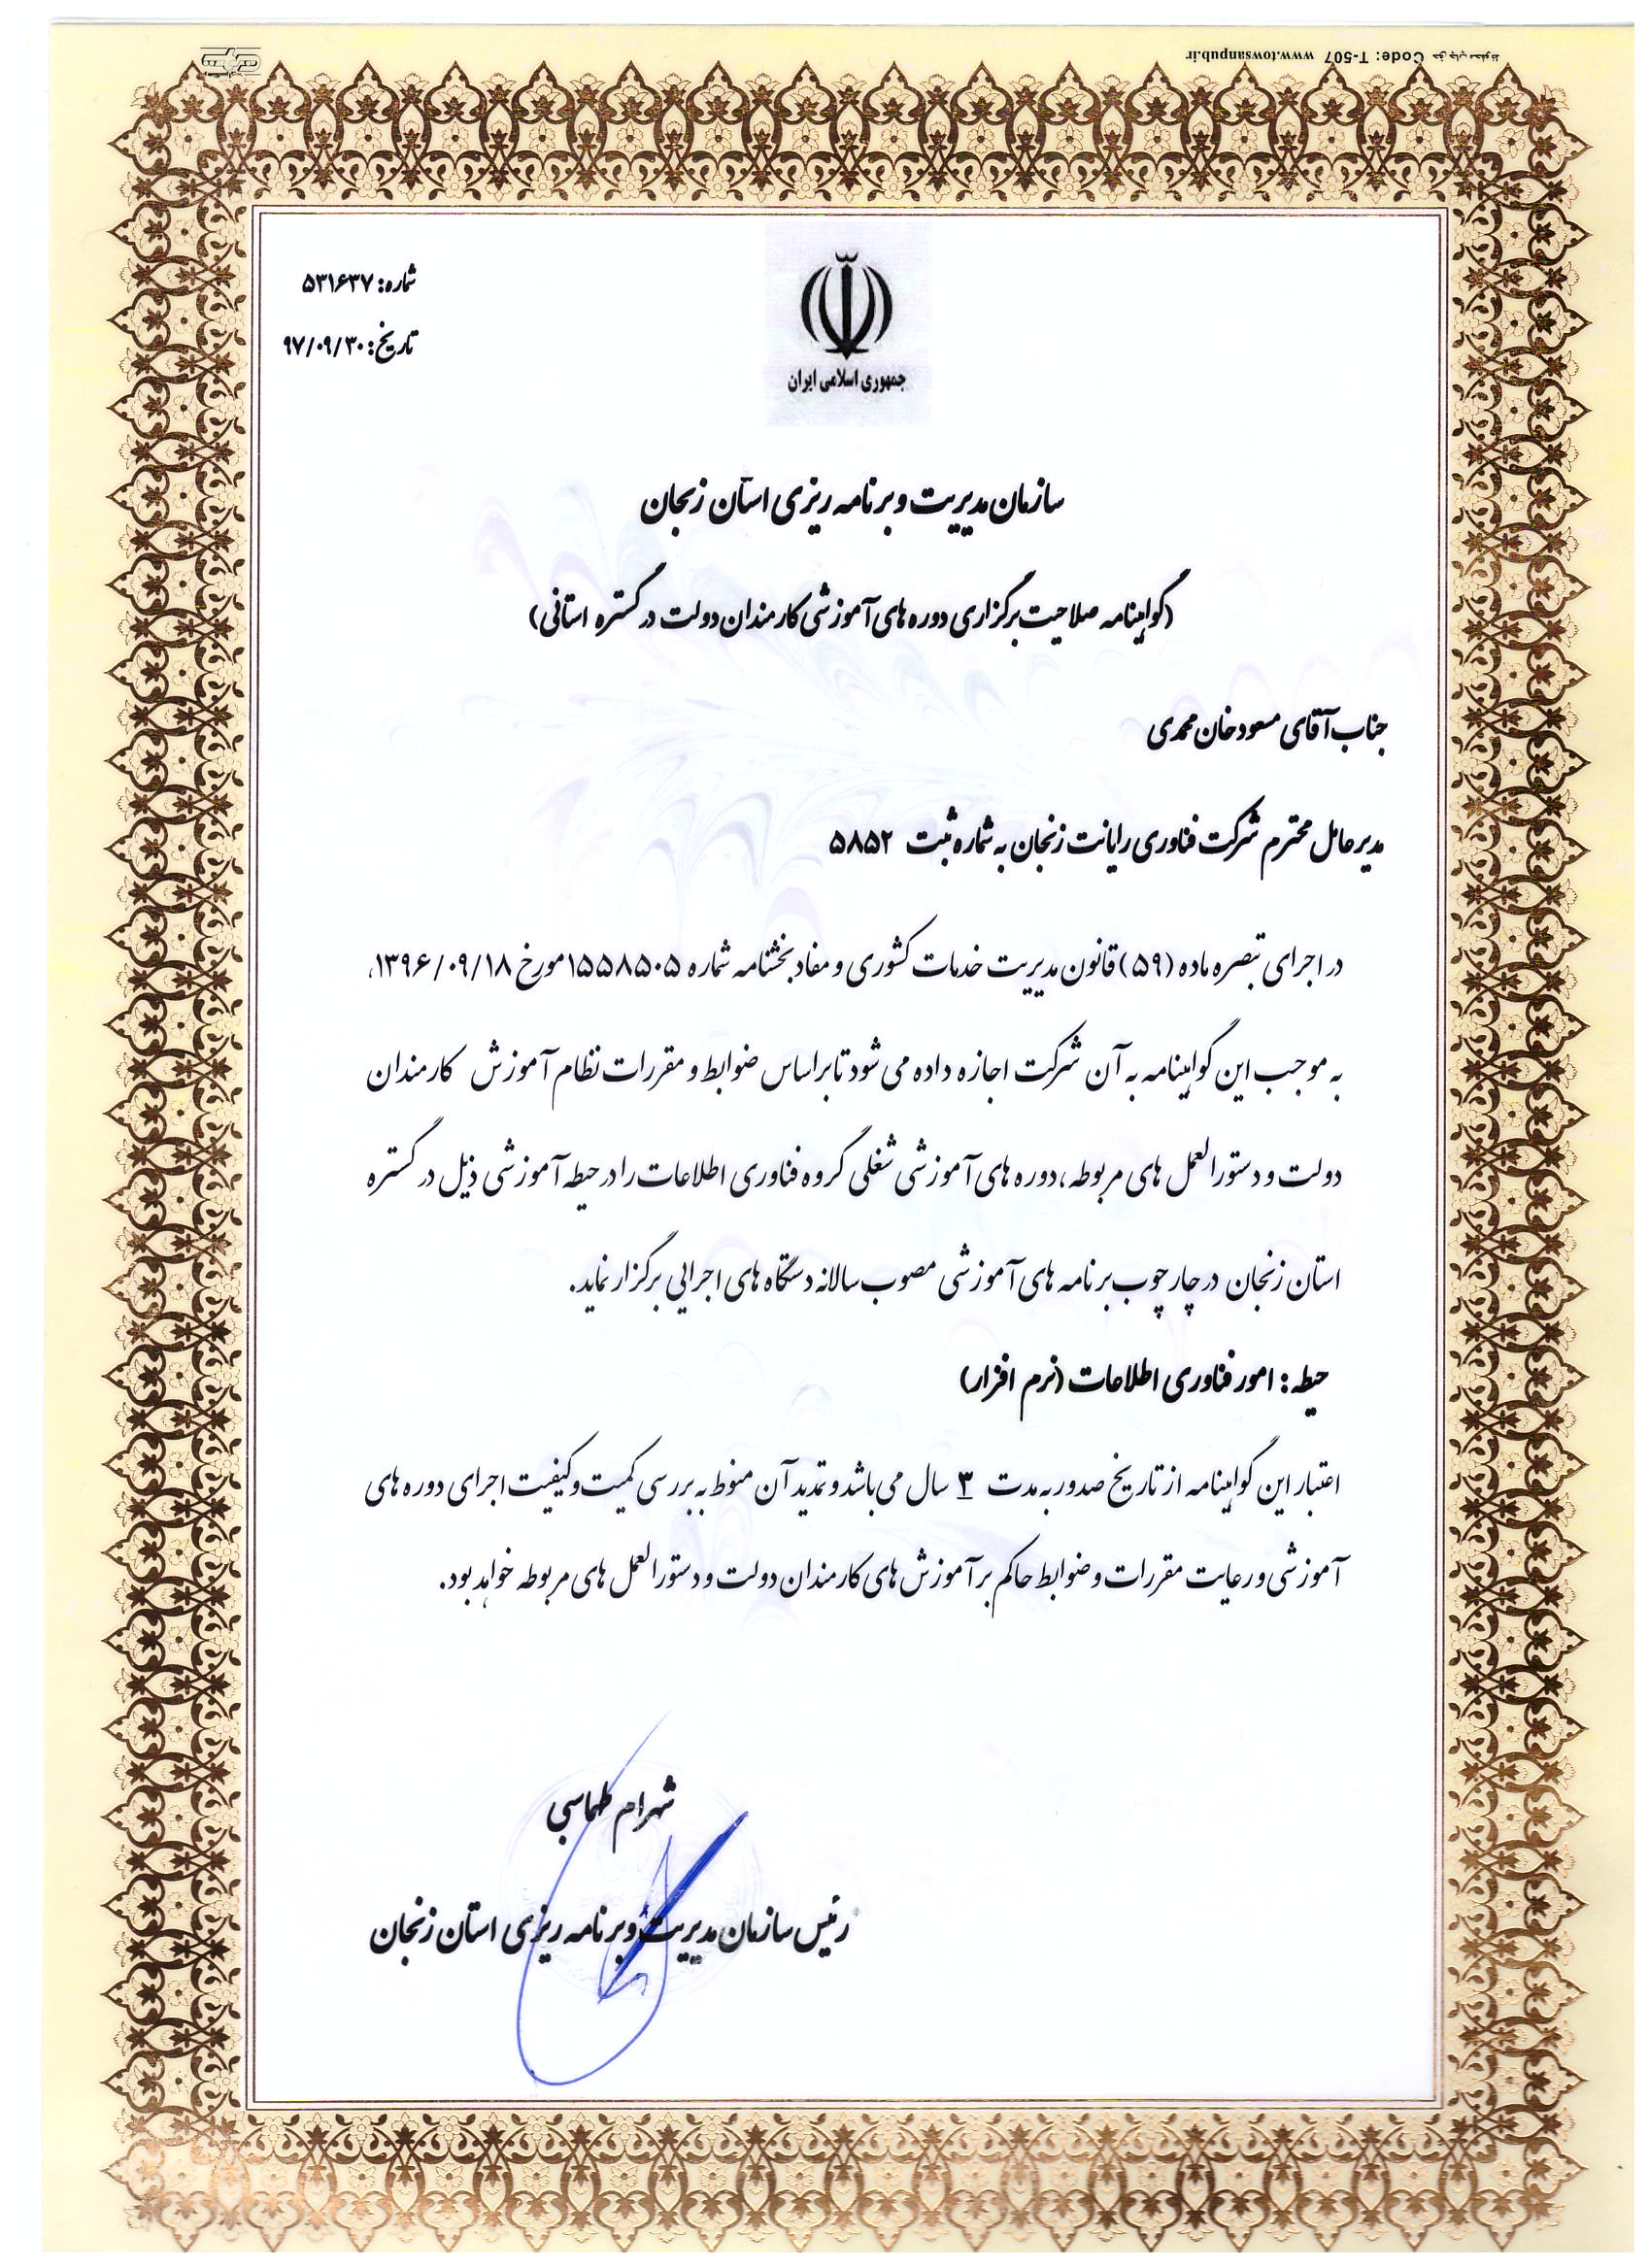 Code: T-507 www.towsanpub.ir
شماره: ۵۳۱۶۳۷
تاریخ: ۹۷/۰۹/۳۰
جمهوری اسلامی ایران
سازمان مدیریت و برنامه ریزی استان زنجان
(گواهینامه صلاحیت برگزاری دوره های آموزشی کارمندان دولت در گستره استانی)
جناب آقای مسعود خان محمدی
مدیر عامل محترم شرکت فناوری رایانت زنجان به شماره ثبت ۵۸۵۲
در اجرای تبصره ماده (۵۹) قانون مدیریت خدمات کشوری و مفاد بخشنامه شماره ۱۵۵۸۵۰۵ مورخ ۱۳۹۶/۰۹/۱۸،
به موجب این گواهینامه به آن شرکت اجازه داده می شود تا براساس ضوابط و مقررات نظام آموزش کارمندان
دولت و دستورالعمل های مربوطه، دوره های آموزشی شغلی گروه فناوری اطلاعات را در حیطه آموزشی ذیل در گستره
استان زنجان در چارچوب برنامه های آموزشی مصوب سالانه دستگاه های اجرایی برگزار نماید.
حیطه : امور فناوری اطلاعات (نرم افزار)
اعتبار این گواهینامه از تاریخ صدور به مدت ۳ سال می باشد و تمدید آن منوط به بررسی کمیت و کیفیت اجرای دوره های
آموزشی و رعایت مقررات و ضوابط حاکم بر آموزش های کارمندان دولت و دستورالعمل های مربوطه خواهد بود.
شهرام طهماسبی
رئیس سازمان مدیریت و برنامه ریزی استان زنجان